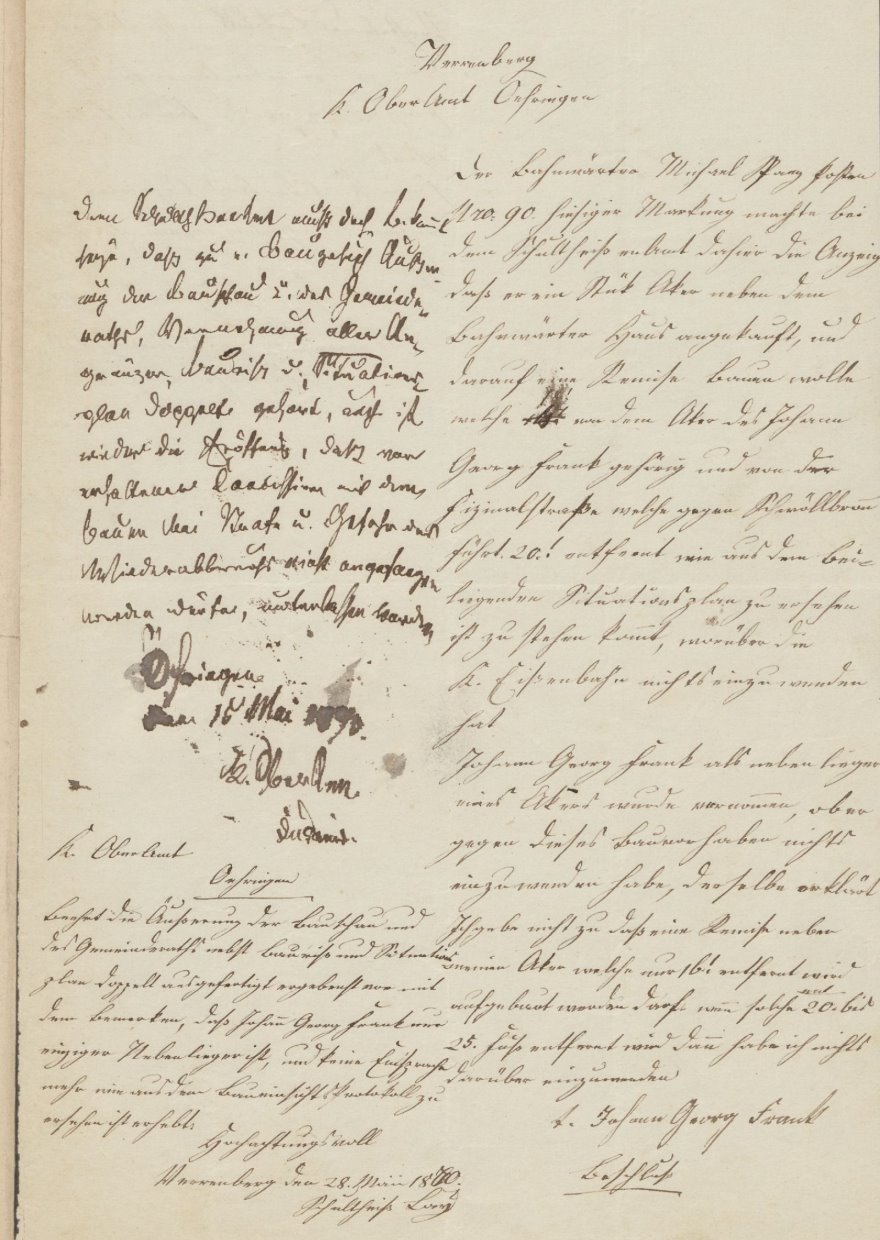 Verrenberg
K. OberAmt Oehringen
Der Bahnwärter Michael Spang Posten
Nro. 90. hiesiger Markung machte bei
dem Schultheißenamt dahier die Anzeig
daß er ein Stük Aker neben dem
Bahnwärter Haus angekauft, und
darauf eine Remise bauen wolle
welche von dem Aker des Johann
Georg Frank gehörig und von der
Vizinalstraße welche gegen Schwöllbronn
führt 20.' entfernt wie aus dem bei-
liegenden Situationsplan zu ersehen
ist zu stehen kommt, worüber die
K. Eisenbahn nichts einzuwenden
hat
Johann Georg Frank als nebenlieger
eines Akers wurde vernommen, ob er
gegen dieses Bauvorhaben nichts
einzuwenden habe, derselbe erklärt
Ich gebe nicht zu daß eine Remise neben
meinen Aker welche nur 16' entfernt wird
aufgebaut werden darf. wenn solche 20. bis
25. Fuß entfernt wird dann habe ich nichts
darüber einzuwenden
t. Johann Georg Frank
Beschluß
Dem Schulth.amt muß doch bekannt
seyn, daß zu e. Baugesuch Äußer-
ung der Bauschau u. des Gemeinde-
raths, Vernehmung aller An-
gränzer, Bauriß u. Situations-
plan doppelt gehört, auch ist
wieder die daß vor
erhaltener mit dem
Bauen bei Strafe u. Gefahr des
Wiederabbruchs nicht angefangen
werden dürfe, unterlassen worden
Öhringen
den 16 Mai
K. Oberamt
K. OberAmt
Oehringen
Beehrt die Äußerung der Bauschau und
des Gemeinderaths nebst Bauriß und Situations
plan doppelt ausgefertigt ergebenst vor mit
dem Bemerken, daß Johann Georg Frank nur
einziger Nebenlieger ist, und keine Einsprache
mehr wie aus dem Baueinsichts Protokoll zu
ersehen ist erhebt.
Hochachtungsvoll
Verrenberg den 28. Mai 1870.
Schultheiß